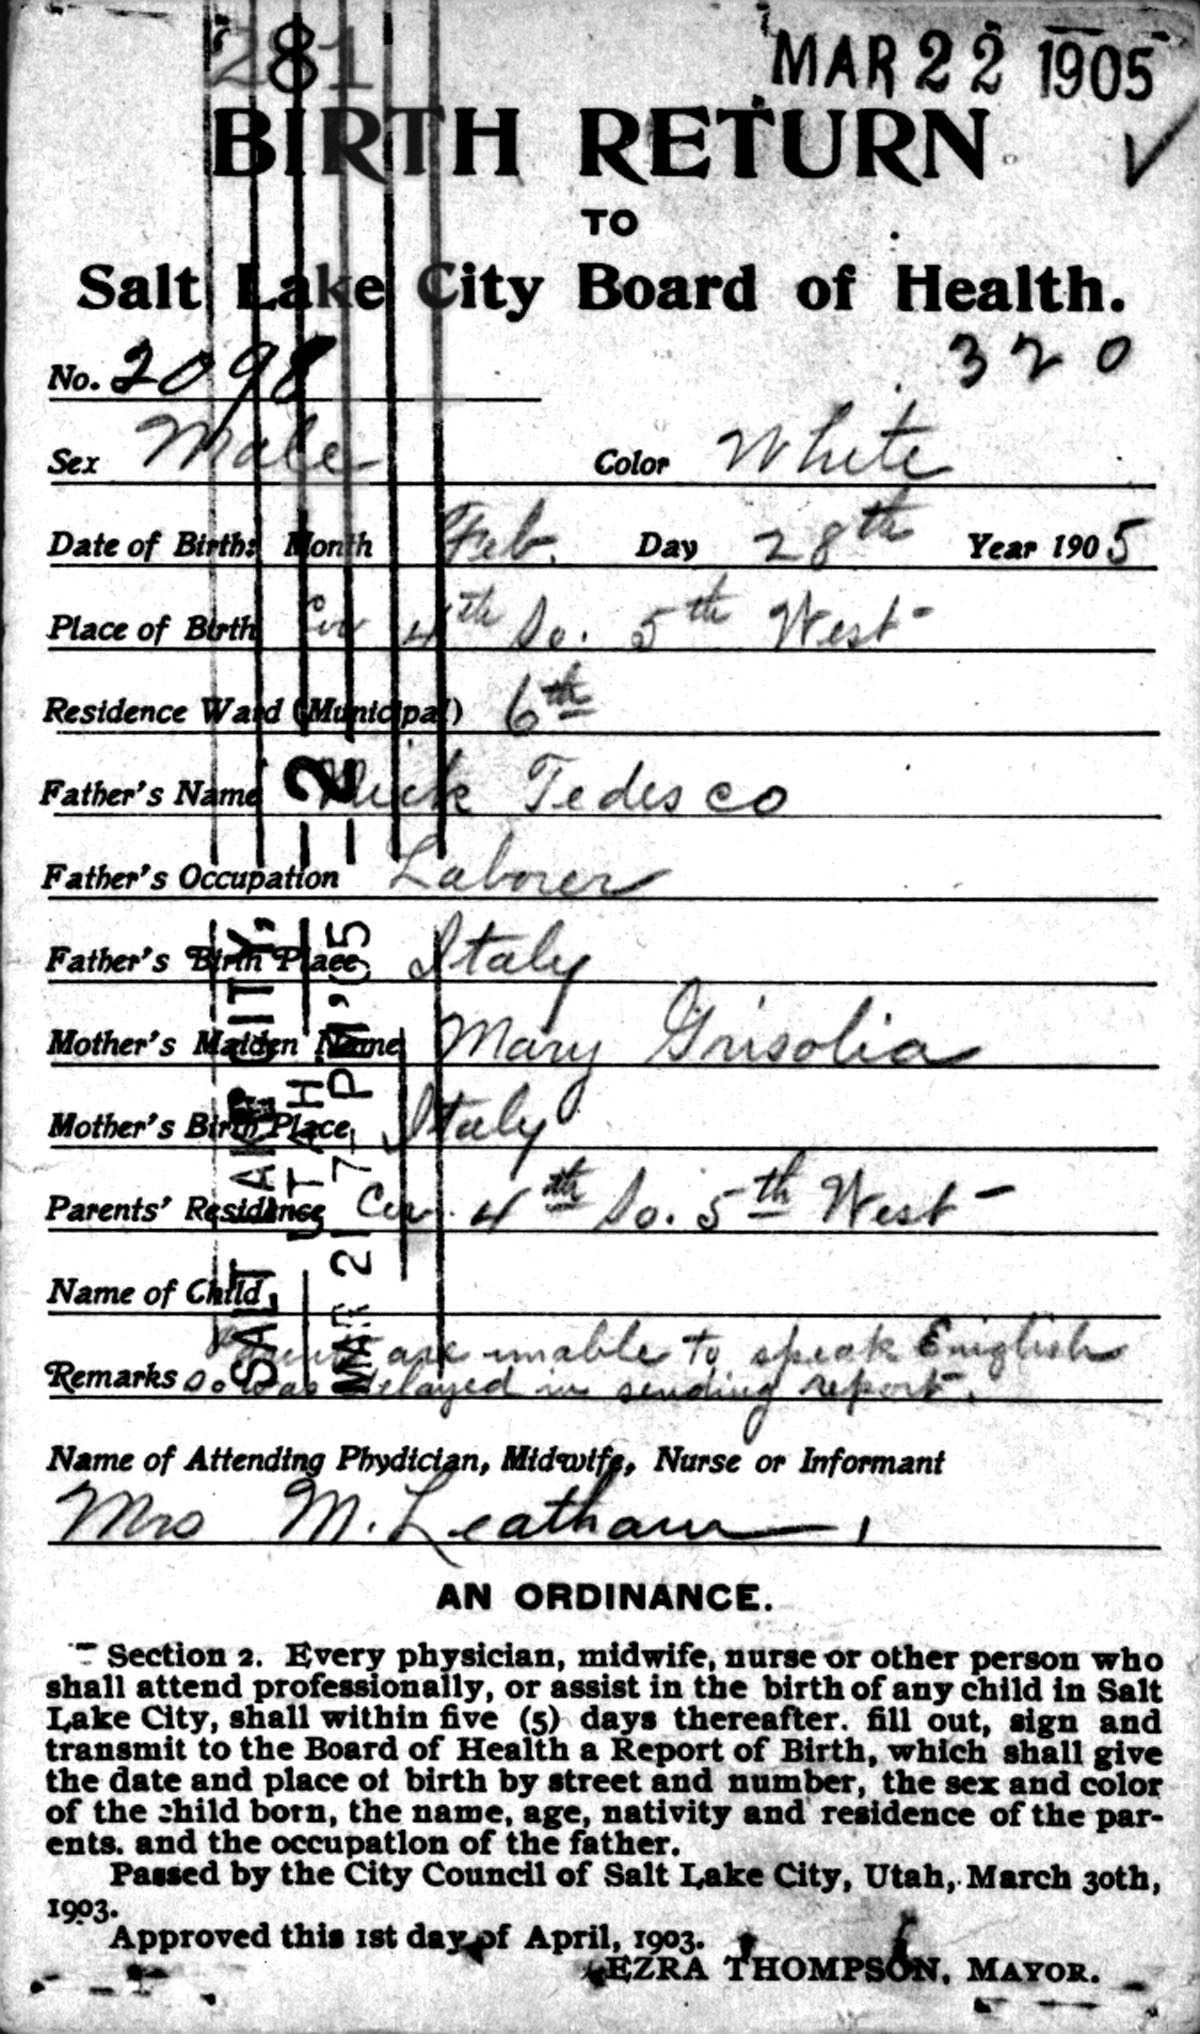 281
MAR 22 1905
BIRTH RETURN
TO
Salt Lake City Board of Health.
No. 2098 320
Sex Male Color White
Date of Birth: Month Feb. Day 28th Year 1905
Place of Birth Cor 4th So. 5th West
Residence Ward (Municipal) 6th
Father's Name Nick Tedesco
Father's Occupation Laborer
Father's Birth Place, Italy
Mother's Maiden Name Mary Grisolia
Mother's Birth Place, Italy
Parents' Residence, Cor. 4th So. 5th West
Name of Child,
Remarks Parents are unable to speak English
So was delayed in sending report.
Name of Attending Phydician, Midwife, Nurse or Informant
Mrs M. Leatham
SALT LAKE CITY,
UTAH
MAR 21 7- PM '05
2
AN ORDINANCE.
Section 2. Every physician, midwife, nurse or other person who
shall attend professionally, or assist in the birth of any child in Salt
Lake City, shall within five (5) days thereafter. fill out, sign and
transmit to the Board of Health a Report of Birth, which shall give
the date and place of birth by street and number, the sex and color
of the child born, the name, age, nativity and residence of the par-
ents. and the occupation of the father.
Passed by the City Council of Salt Lake City, Utah, March 30th,
1903.
Approved this 1st day of April, 1903.
EZRA THOMPSON, MAYOR.